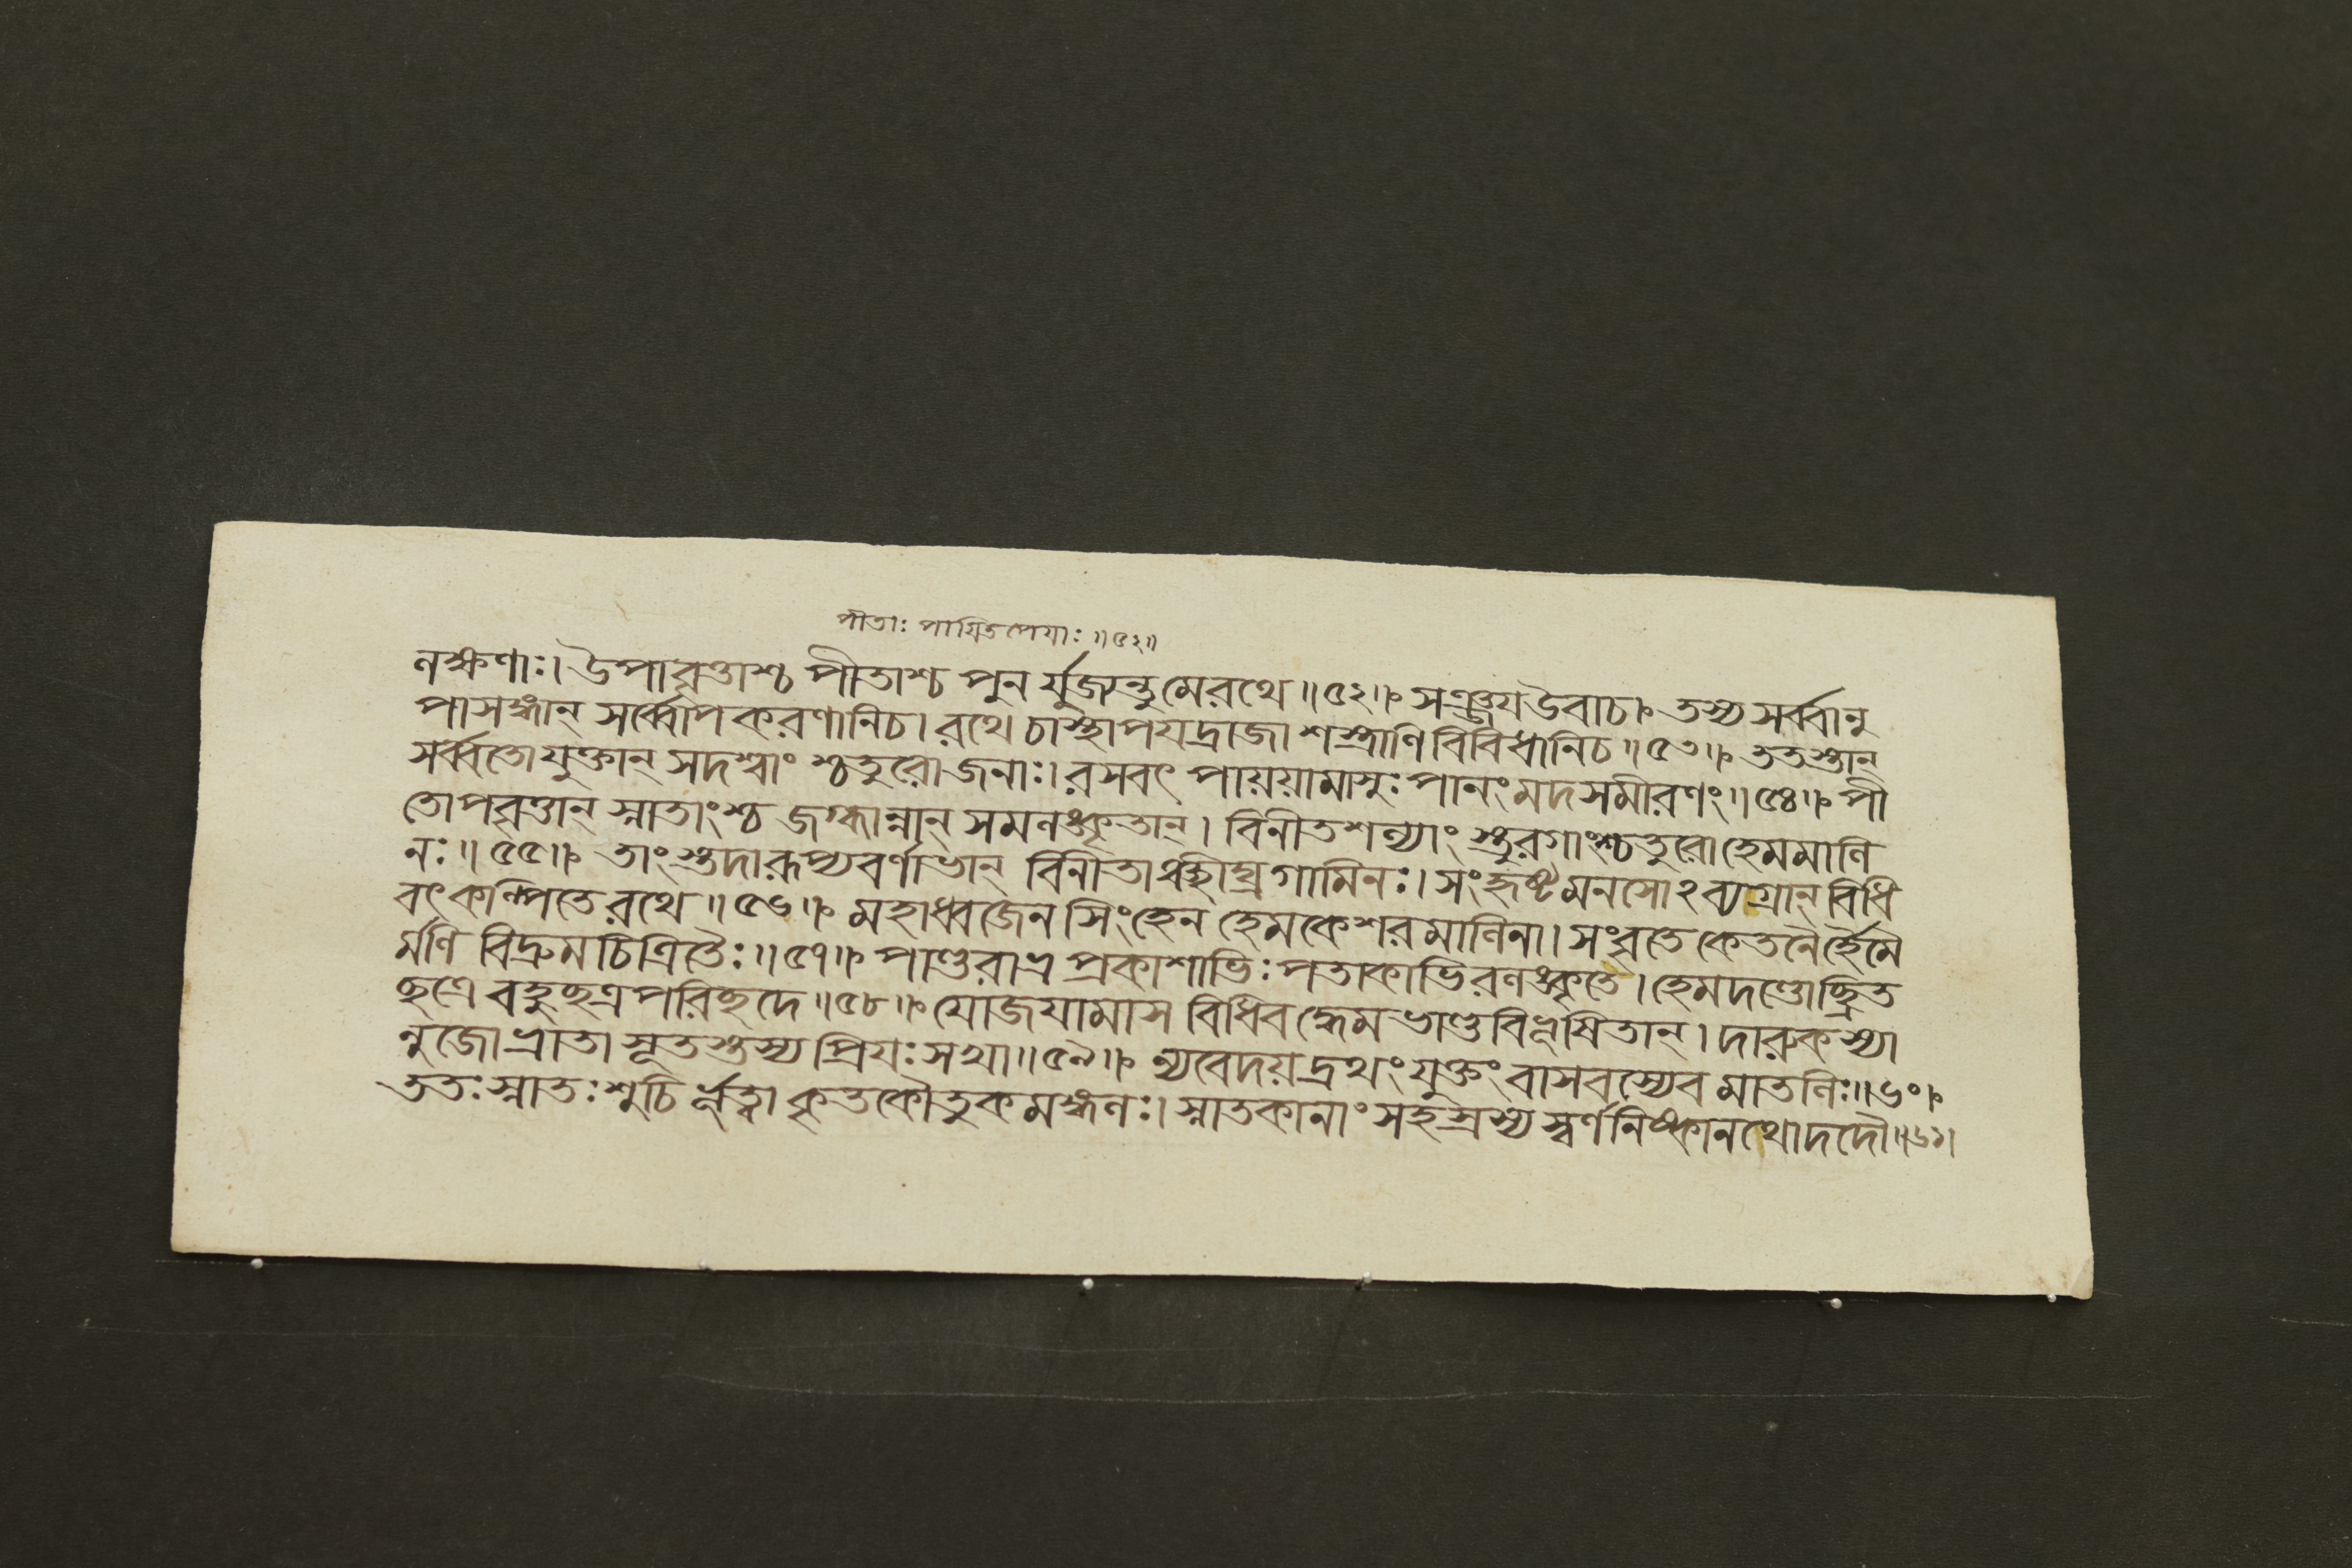 পীতাঃ পায়িতপেযাঃ ॥৫২॥
লক্ষণাঃ। উপাবৃত্তাশ্চ পীতাশ্চ পুন র্যুজ্যন্তু মেরথে ॥৫২॥ সঞ্জয উবাচ। তস্য সর্ব্বানু
পাসঙ্গান্ সর্ব্বোপকরণানিচ। রথে চাস্থাপযদ্রাজা শস্ত্রাণি বিবিধানিচ ॥৫৩॥ ততস্তান্
সর্ব্বতো যুক্তান্ সদশ্বাং শ্চতুরো জনাঃ। রসবৎ পায়য়ামাসুঃ পানং মদসমীরণং ॥৫৪॥ পী
তোপবৃত্তান্ স্নাতাংশ্চ জগ্ধান্নান্ সমলঙ্কৃতান্। বিনীতশল্যাং স্তুরগাংশ্চতুরো হেমমালি
নঃ ॥৫৫॥ তাং স্তদা রূপ্যবর্ণাভান্ বিনীতাঞ্ছীঘ্রগামিনঃ। সংহৃষ্টমনসোঽব্যগ্রান্ বিধি
বৎ কল্পিতে রথে ॥৫৬॥ মহাধ্বজেন সিংহেন হেমকেশরমালিনা। সংবৃতে কেতনৈর্হৈমৈ
র্মণি বিদ্রুমচিত্রিতৈঃ ॥৫৭॥ পাণ্ডুরাভ্র প্রকাশাভিঃ পতাকাভিরলঙ্কৃতে। হেমদণ্ডোচ্ছ্রিত
ছত্রে বহুছত্র পরিছদে ॥৫৮॥ যোজযামাস বিধিবদ্ধেমভাণ্ডবিভূষিতান্। দারুকস্যা
নুজো ভ্রাতা সূতস্তস্য প্রিযঃ সখা ॥৫৯॥ ন্যবেদয়দ্রথং যুক্তং বাসবস্যেব মাতলিঃ ॥৬০॥
ততঃ স্নাতঃ শুচি র্ভূত্বা কৃতকৌতুকমঙ্গলঃ। স্নাতকানাং সহস্রস্য স্বর্ণনিষ্কানথোদদৌ ॥৬১।